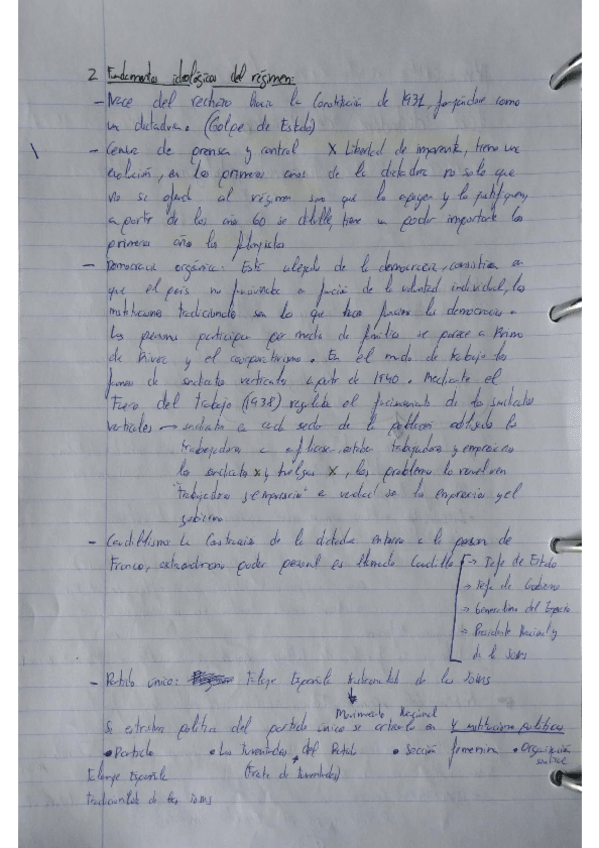 2 Fundamentos ideológicos del régimen:
- Nace del rechazo hacia la Constitución de 1931, forjándose como
un dictadura. (Golpe de Estado)
- Censura de prensa y control X Libertad de imprenta, tiene una
evolución, en los primeros años de la dictadura no solo que
no se opond al régimen sino que lo apoyen y lo justifiquen,
a partir de los año 60 se debilita, tiene un poder importante los
primeros año los falangistas
- Democracia orgánica: Esté alejado de la democracia, consistía en
que el país no funcionaba a función de la voluntad individual, las
instituciones tradicionales son lo que hace funcionar la democracia.
Las personas participan por medio de familias se parece a Primo
de Rivera y el corporativismo. En el mundo de trabajo los
de sindicatos verticales a partir de 1940. Mediante el
Fuero del Trabajo (1938) regulaba el funcionamiento de los sindicatos
verticales → sindicato a cada sector de la población obligado los
trabajadores a afiliarse, estaban trabajadores y empresarios
los sindicatos X y huelgas X, los problemas lo resuelven
trabajadores y empresarios a verdad se lo empresarios y el
gobierno
- Caudillismo: La Construcción de la dictadura entorno a la persona de
Franco, extraordinario poder personal es llamado Caudillo → Jefe de Estado
→ Jefe de Gobierno
→ Generalísimo del Ejército
→ Presidente Nacional y
de la JONS
- Partido único: Falange Española tradicionalista de las JONS
↓
Movimiento Nacional
Si estructura política del partido único se articula en 4 instituciones políticas
• Partido • Las Juventudes del Partido • Sección femenina • Organización
sindical
Falange Española (Frente de Juventudes)
tradicionalista de las JONS